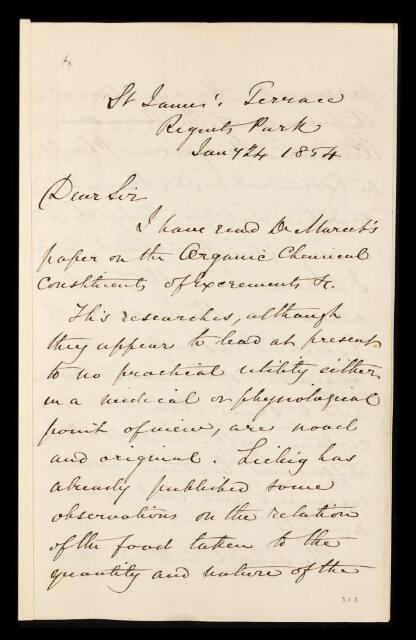 St James'. Terrace
Regents Park
Jany 24 1854
Dear Sir
I have read Dr Marcet's
paper on the Organic Chemical
Constituents of Excrements &c.
His researches, although
they appear to lead at present
to no practical utility either
in a medical or physiological
point of view, are novel
and original. Liebig has
already published some
observations on the relation
of the food taken to the
quantity and nature of the
303